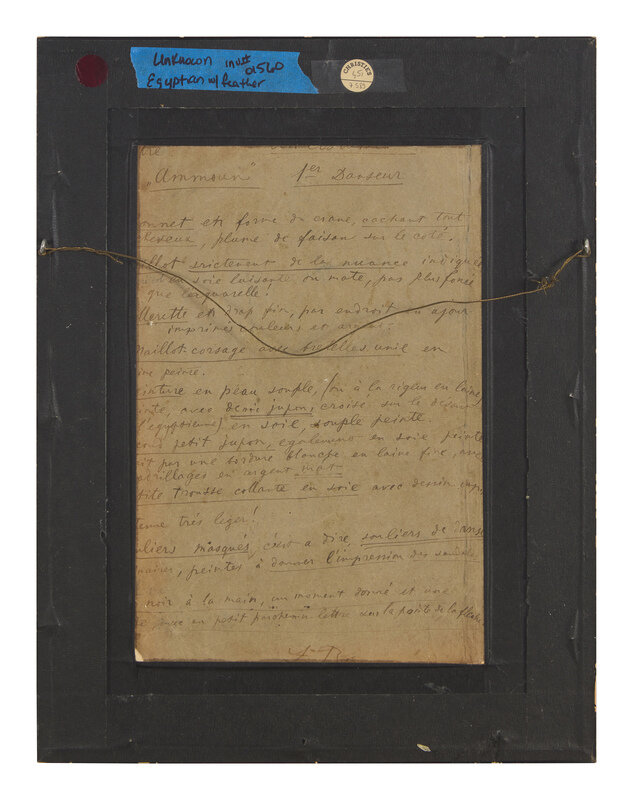 Unknown inv#
01560
Egyptian w/ feather
CHRISTIE'S
451
"Ammoun" 1er Danseur
onnet en forme du crane, cachant tout
cheveux, plume de faisan sur le coté.
aillot strictement de la nuance indiquée
en soie luisante ou mate, pas plus foncé
que l'aquarelle!
en drap fin, par endroit ou ajour
imprimés couleurs et argent.
Maillot-corsage avec bretelles unie en
ine peinte.
einture en peau souple, (ou à la rigueur en laine
inte, avec demi jupon, croisé sur le devant
(l'egyptienne) en soie, souple peinte.
cond petit jupon, egalement en soie peinte
it par une bordure blanche en laine fine, avec
en argent mat
tite trousse collante en soie avec dessin impr
tenue très leger!
uliers masqués, c'est a dire, souliers de danse
inaires, peintes à donner l'impression des sandales
noir à la main, un moment donné et une
e avec un petit parchemin lettre sur la pointe de la fleche